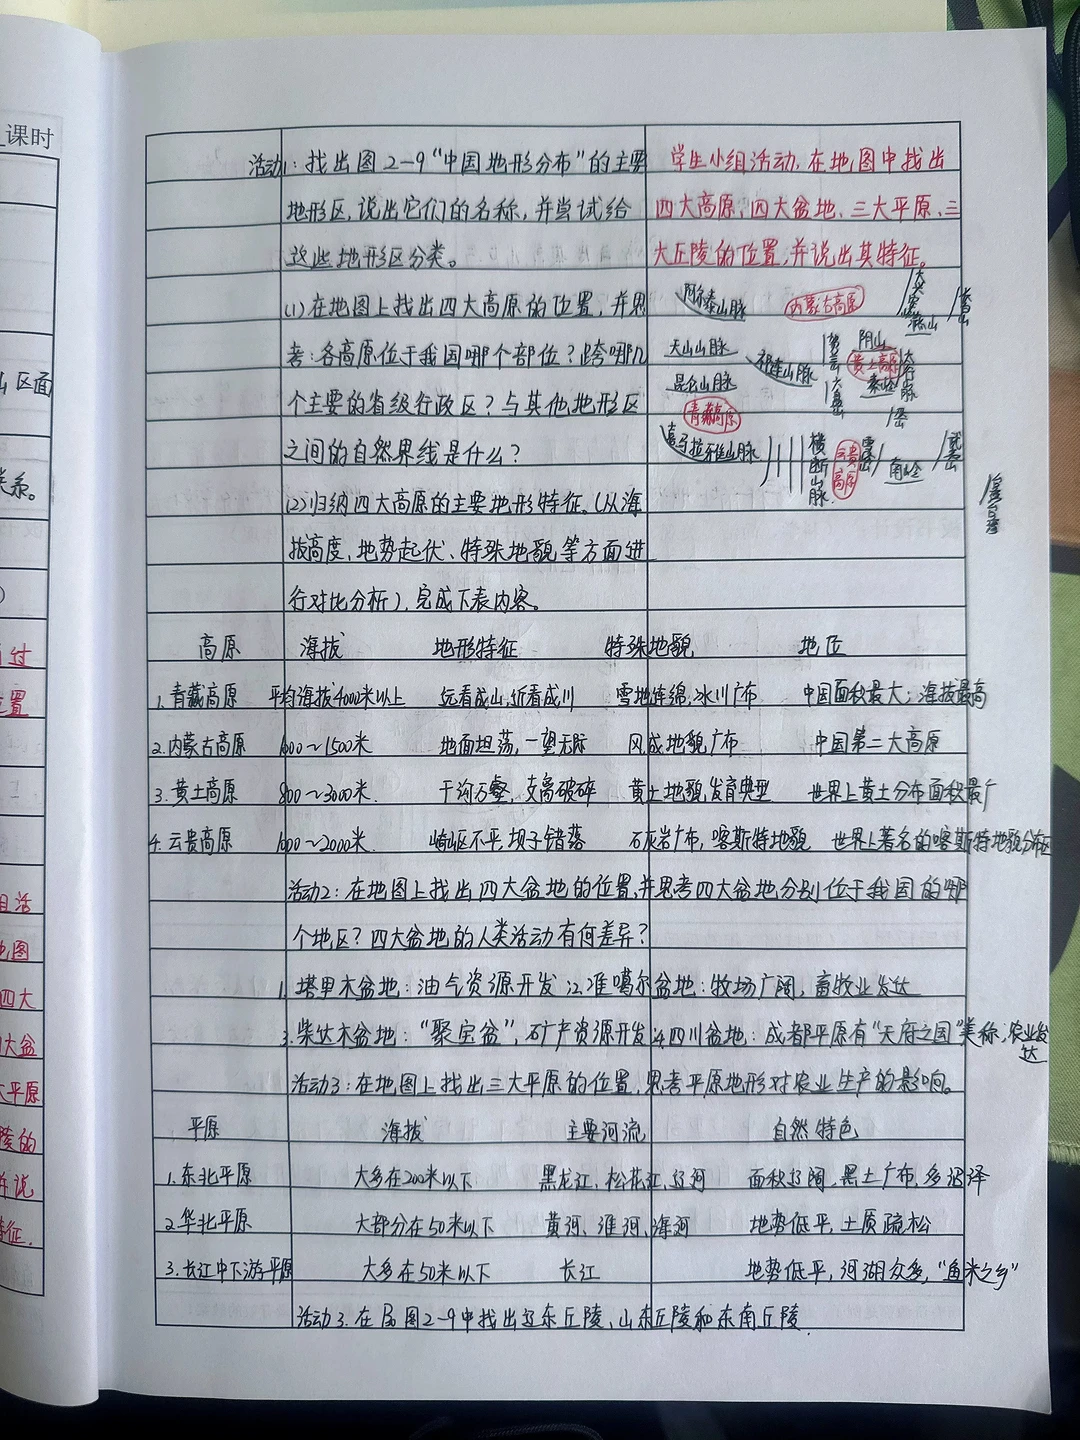 课时
区面
关系。
过
置
组活
地图
四大
大盆
大平原
陵的
并说
特征.
活动1：找出图2-9“中国地形分布”的主要
地形区,说出它们的名称,并尝试给
这些地形区分类。
(1)在地图上找出四大高原的位置，并思
考:各高原位于我国哪个部位？跨哪几
个主要的省级行政区？与其他地形区
之间的自然界线是什么？
(2)归纳四大高原的主要地形特征。(从海
拔高度、地势起伏、特殊地貌等方面进
行对比分析),完成下表内容。
学生小组活动,在地图中找出
四大高原、四大盆地、三大平原、三
大丘陵的位置,并说出其特征。
阿尔泰山脉 内蒙古高原
天山山脉 祁连山脉 阴山
昆仑山脉 黄土高原 太行山脉
青藏高原 秦岭
喜马拉雅山脉 横断山脉 云贵高原 南岭
高原 海拔 地形特征 特殊地貌 地位
1.青藏高原 平均海拔4000米以上 远看成山,近看成川 雪地连绵,冰川广布 中国面积最大；海拔最高
2.内蒙古高原 1000～1500米 地面坦荡,一望无际 风成地貌广布 中国第二大高原
3.黄土高原 800～3000米. 千沟万壑,支离破碎 黄土地貌发育典型 世界上黄土分布面积最广
4.云贵高原 1000～2000米. 崎岖不平,坝子错落 石灰岩广布,喀斯特地貌 世界上著名的喀斯特地貌分布区
活动2：在地图上找出四大盆地的位置,并思考四大盆地分别位于我国的哪
个地区？四大盆地的人类活动有何差异？
1.塔里木盆地：油气资源开发 2.准噶尔盆地：牧场广阔，畜牧业发达
3.柴达木盆地：“聚宝盆”,矿产资源开发 4.四川盆地：成都平原有“天府之国”美称；农业发
达
活动3：在地图上找出三大平原的位置,思考平原地形对农业生产的影响。
平原 海拔 主要河流 自然特色
1.东北平原 大多在200米以下 黑龙江、松花江、辽河 面积辽阔,黑土广布,多沼泽
2.华北平原 大部分在50米以下 黄河、淮河、海河 地势低平,土质疏松
3.长江中下游平原 大多在50米以下 长江 地势低平,河湖众多,“鱼米之乡”
活动3.在图2-9中找出辽东丘陵、山东丘陵和东南丘陵.